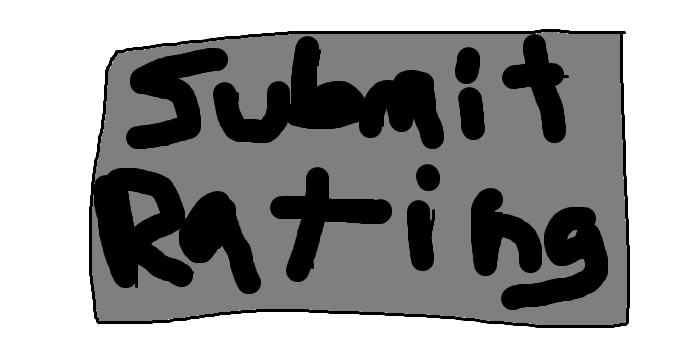 Submit
Rating